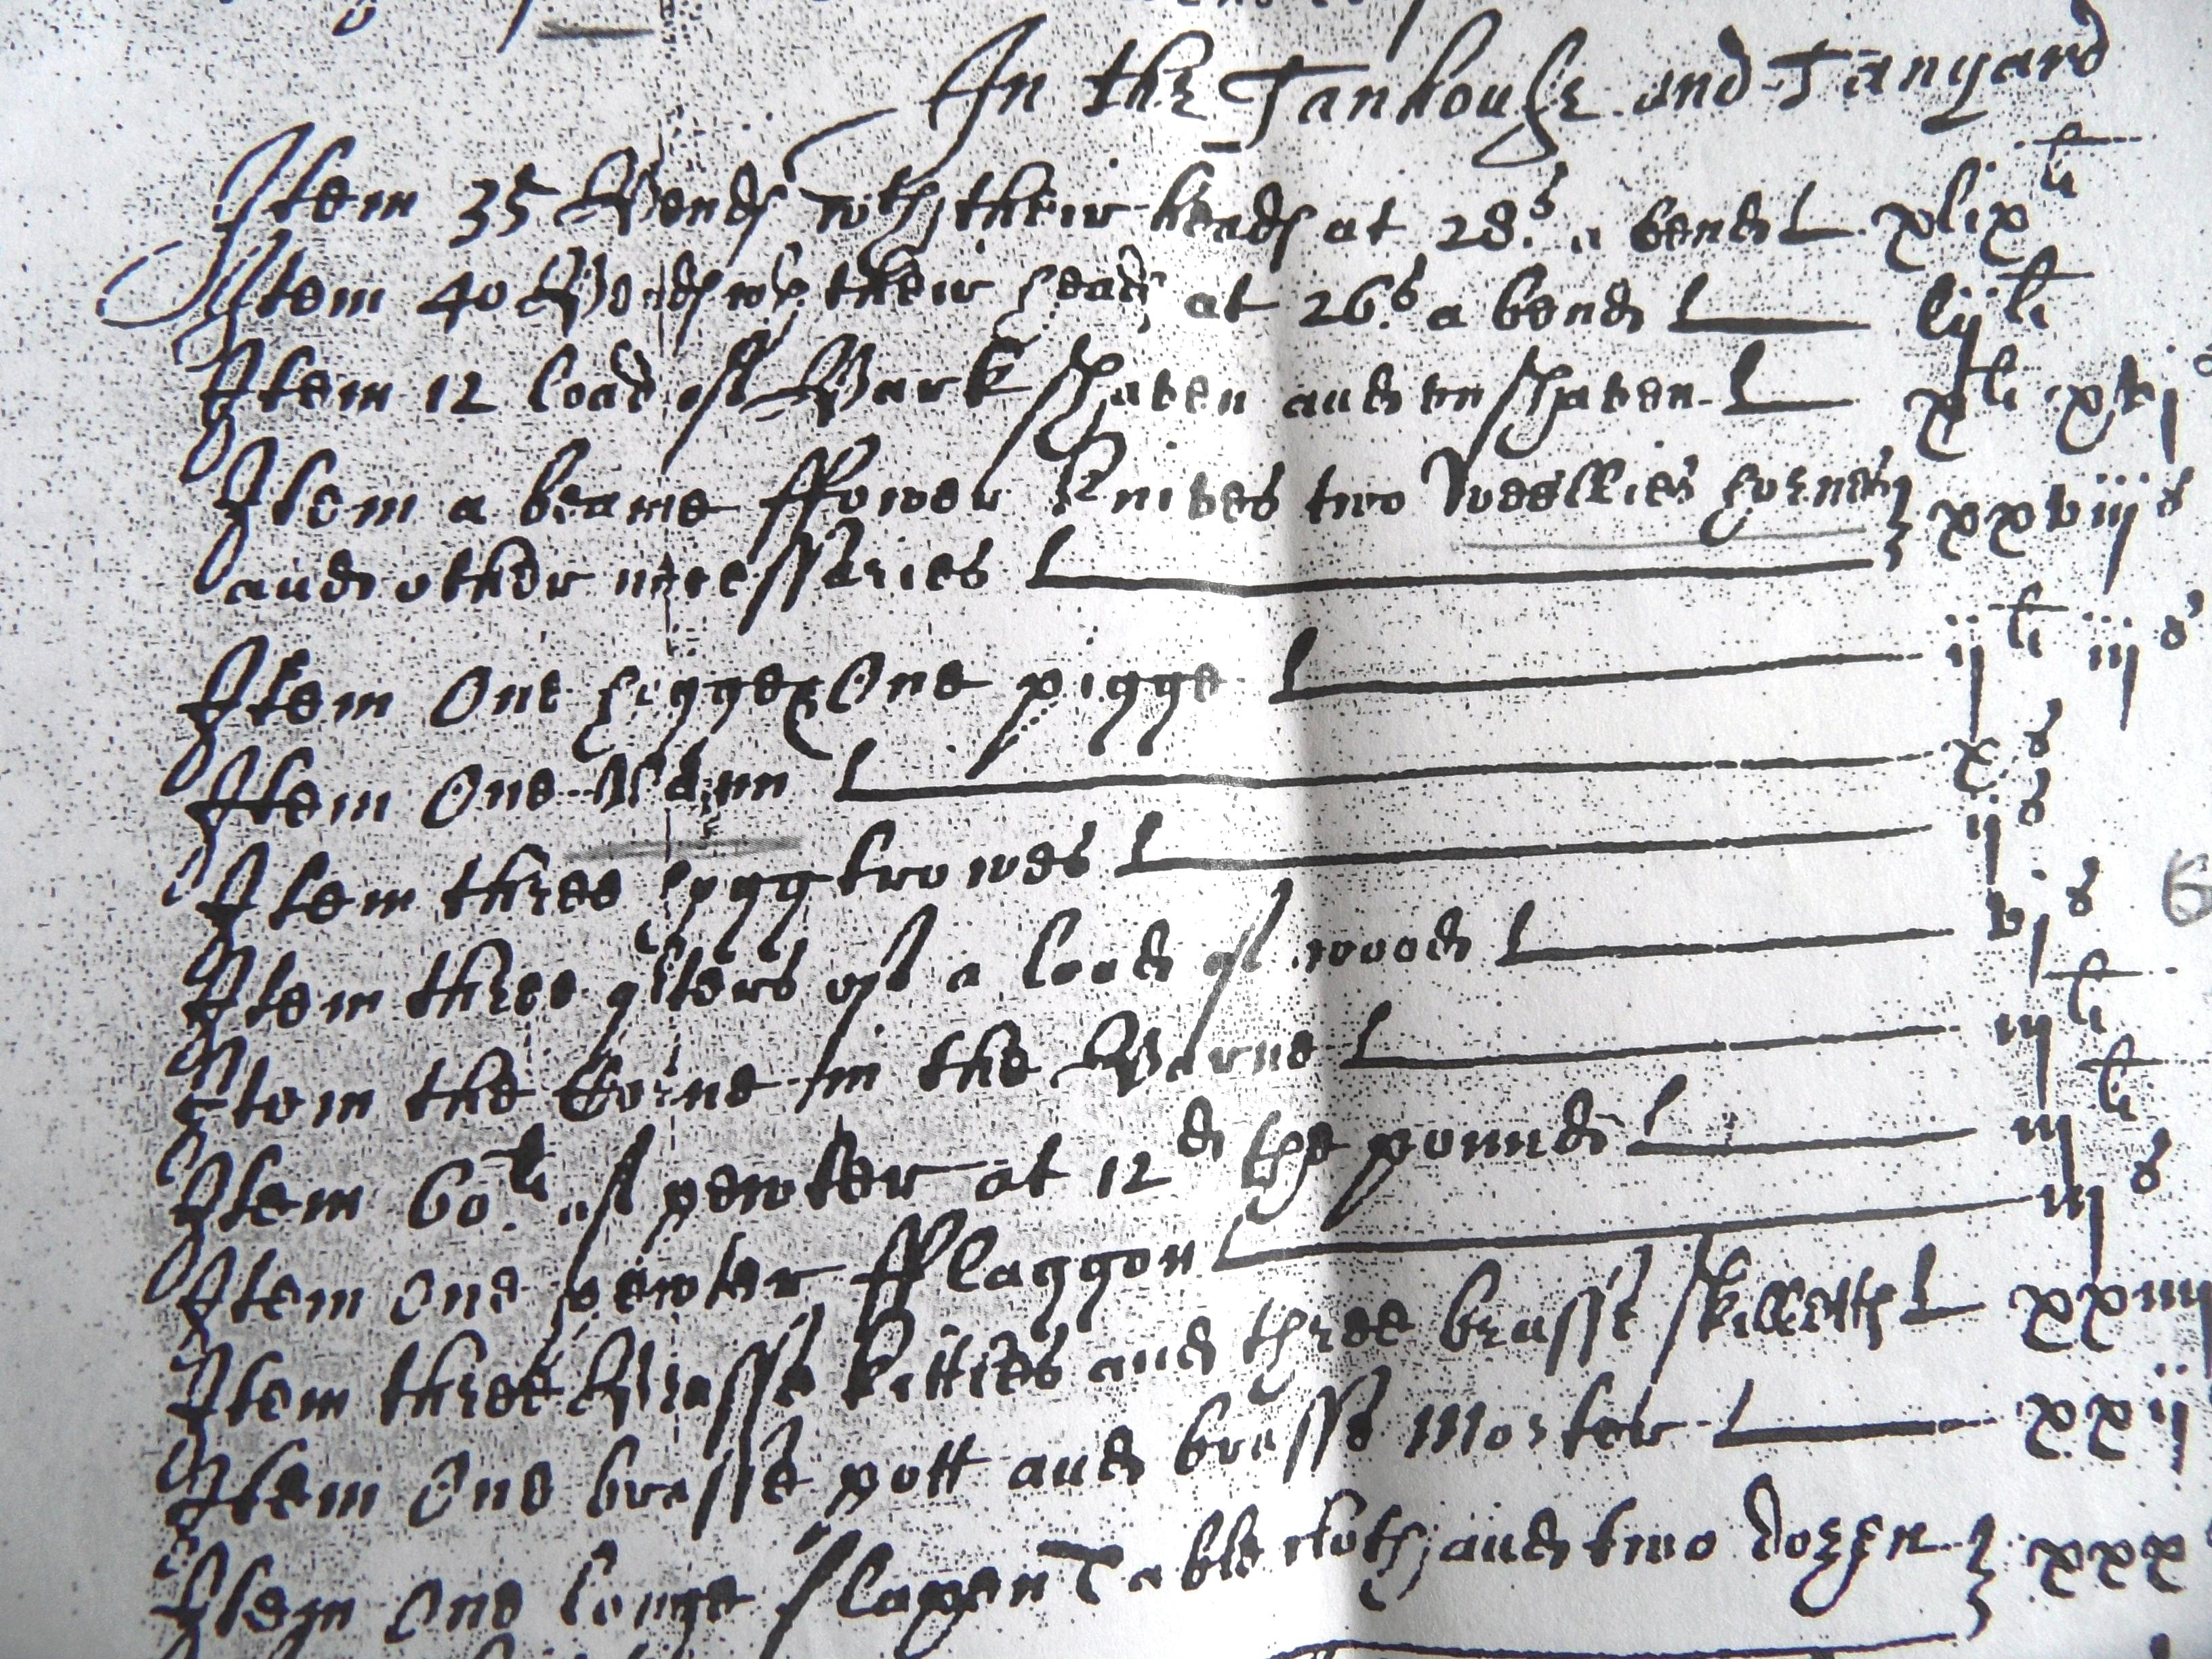 In the Tanhouse and Tanyard
Item 35 Bends wth their heads at 28.s a bend xlix li
Item 40 Bends wth their heads at 26.s a bend lij li
Item 12 load of Bark shaven and vnshaven x li xvj s
Item a beame ffower knives two hornes xxviij s
and other necessaries
Item One hogge & One pigge ij li iij s
Item One x s
Item three hogg trowes ij s
Item three qters of a load of wood vj s
Item the Corne in the Barne iij li
Item 60 li of pewter at 12 d the pound iij li
Item One pewter fflaggon iij s
Item three Brasse kittles and three brasse skilletts xxiiij
Item One brasse pott and brasse Morter xxij
Item One longe flaxen Table cloth and two dozen xxx